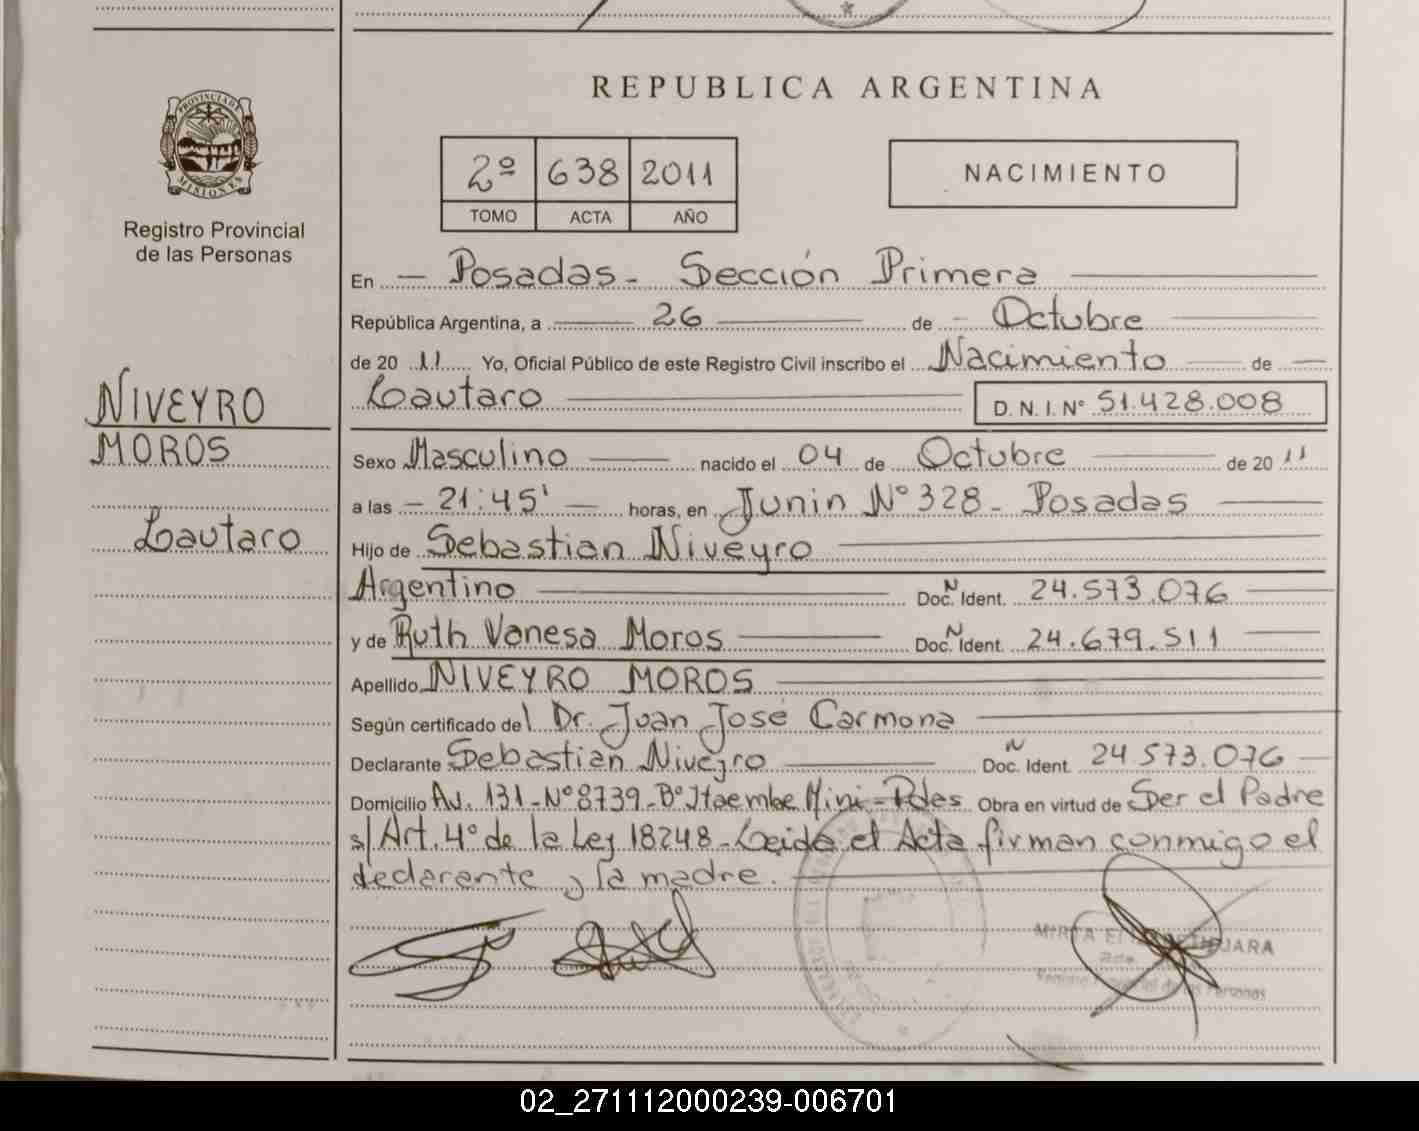 REPUBLICA ARGENTINA
PROVINCIA DE
MISIONES
Registro Provincial
de las Personas
2º 638 2011
TOMO ACTA AÑO
NACIMIENTO
En — Posadas - Sección Primera
República Argentina, a 26 de - Octubre
de 20 11 Yo, Oficial Público de este Registro Civil inscribo el Nacimiento de
Lautaro D.N.I. Nº 51.428.008
NIVEYRO
MOROS
Lautaro
Sexo Masculino nacido el 04 de Octubre de 20 11
a las - 21:45' - horas, en Junin Nº 328 - Posadas
Hijo de Sebastian Niveyro
Argentino Doc. N Ident. 24.573.076
y de Ruth Vanesa Moros Doc. N Ident. 24.679.511
Apellido NIVEYRO MOROS
Según certificado del Dr. Juan José Carmona
Declarante Sebastian Niveyro Doc. N Ident. 24573.076
Domicilio Av. 131 - Nº 8739 - Bº Itaembe Mini - Pdes Obra en virtud de Ser el Padre
s/ Art. 4º de la Ley 18248 - Leida el Acta firman conmigo el
declarante y la madre.
Registro Provincial de las Personas
02_271112000239-006701